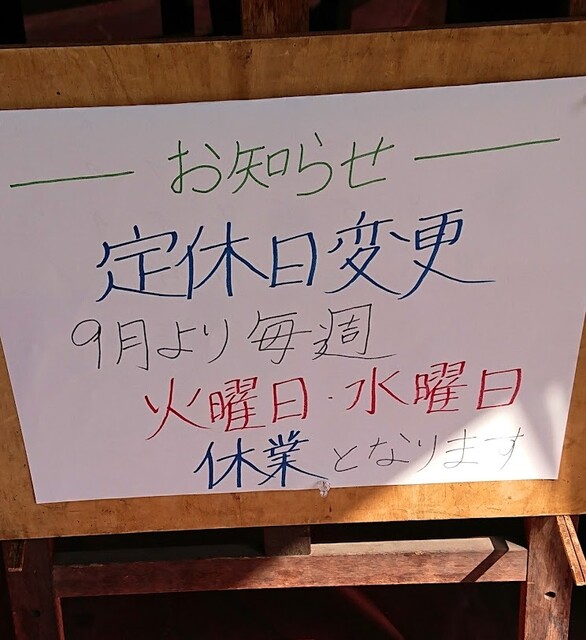 お知らせ
定休日変更
9月より毎週
火曜日・水曜日
休業となります